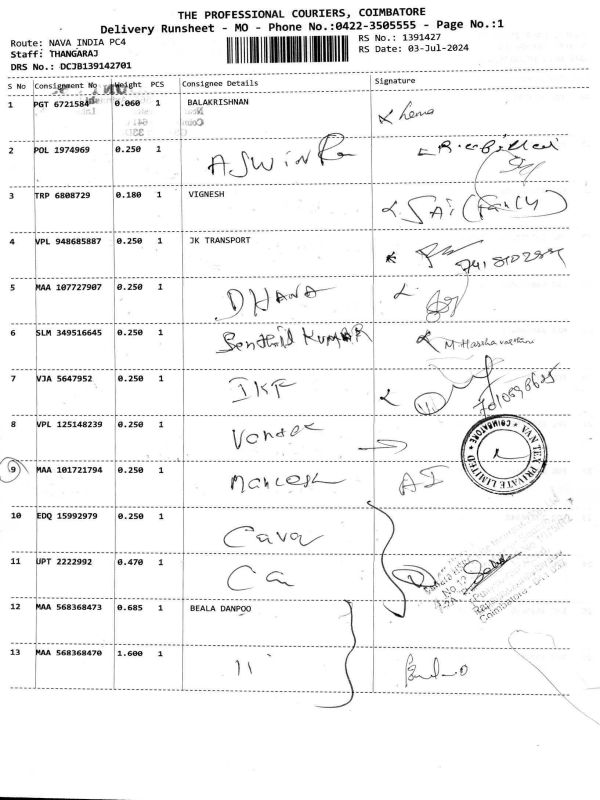 THE PROFESSIONAL COURIERS, COIMBATORE
Delivery Runsheet - MO - Phone No.:0422-3505555 - Page No.:1
Route: NAVA INDIA PC4
RS No.: 1391427
Staff: THANGARAJ
RS Date: 03-Jul-2024
DRS No.: DCJB139142701
S No Consignment No Weight PCS Consignee Details Signature
1 PGT 6721584 0.060 1 BALAKRISHNAN hema
2 POL 1974969 0.250 1 ASWIN R
3 TRP 6808729 0.180 1 VIGNESH SAI (Family)
4 VPL 948685887 0.250 1 JK TRANSPORT
5 MAA 107727907 0.250 1 DHANA
6 SLM 349516645 0.250 1 Senthil KUMAR
7 VJA 5647952 0.250 1 IKF
8 VPL 125148239 0.250 1
VAN TEX PRIVATE LIMITED * COIMBATORE *
9 MAA 101721794 0.250 1 AI
10 EDQ 15992979 0.250 1
11 UPT 2222992 0.470 1 Ca
12 MAA 568368473 0.685 1 BEALA DANPOO
13 MAA 568368470 1.600 1 11